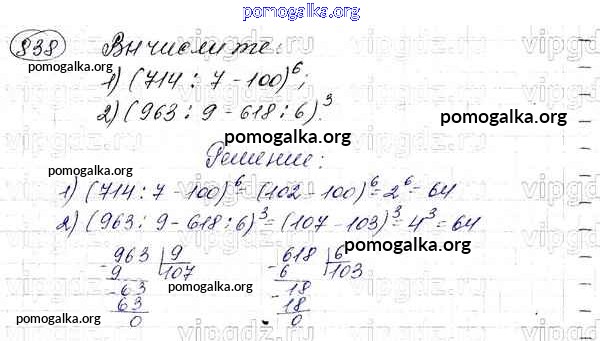 pomogalka.org
838 Вычислите:
pomogalka.org
1) (714 : 7 - 100)^6;
2) (963 : 9 - 618 : 6)^3.
pomogalka.org
pomogalka.org
Решение:
pomogalka.org
1) (714 : 7 - 100)^6 = (102 - 100)^6 = 2^6 = 64
2) (963 : 9 - 618 : 6)^3 = (107 - 103)^3 = 4^3 = 64
pomogalka.org
-963 | 9 -618 | 6
9 107 6 103
-63 -18
pomogalka.org
63 18
0 0
pomogalka.org